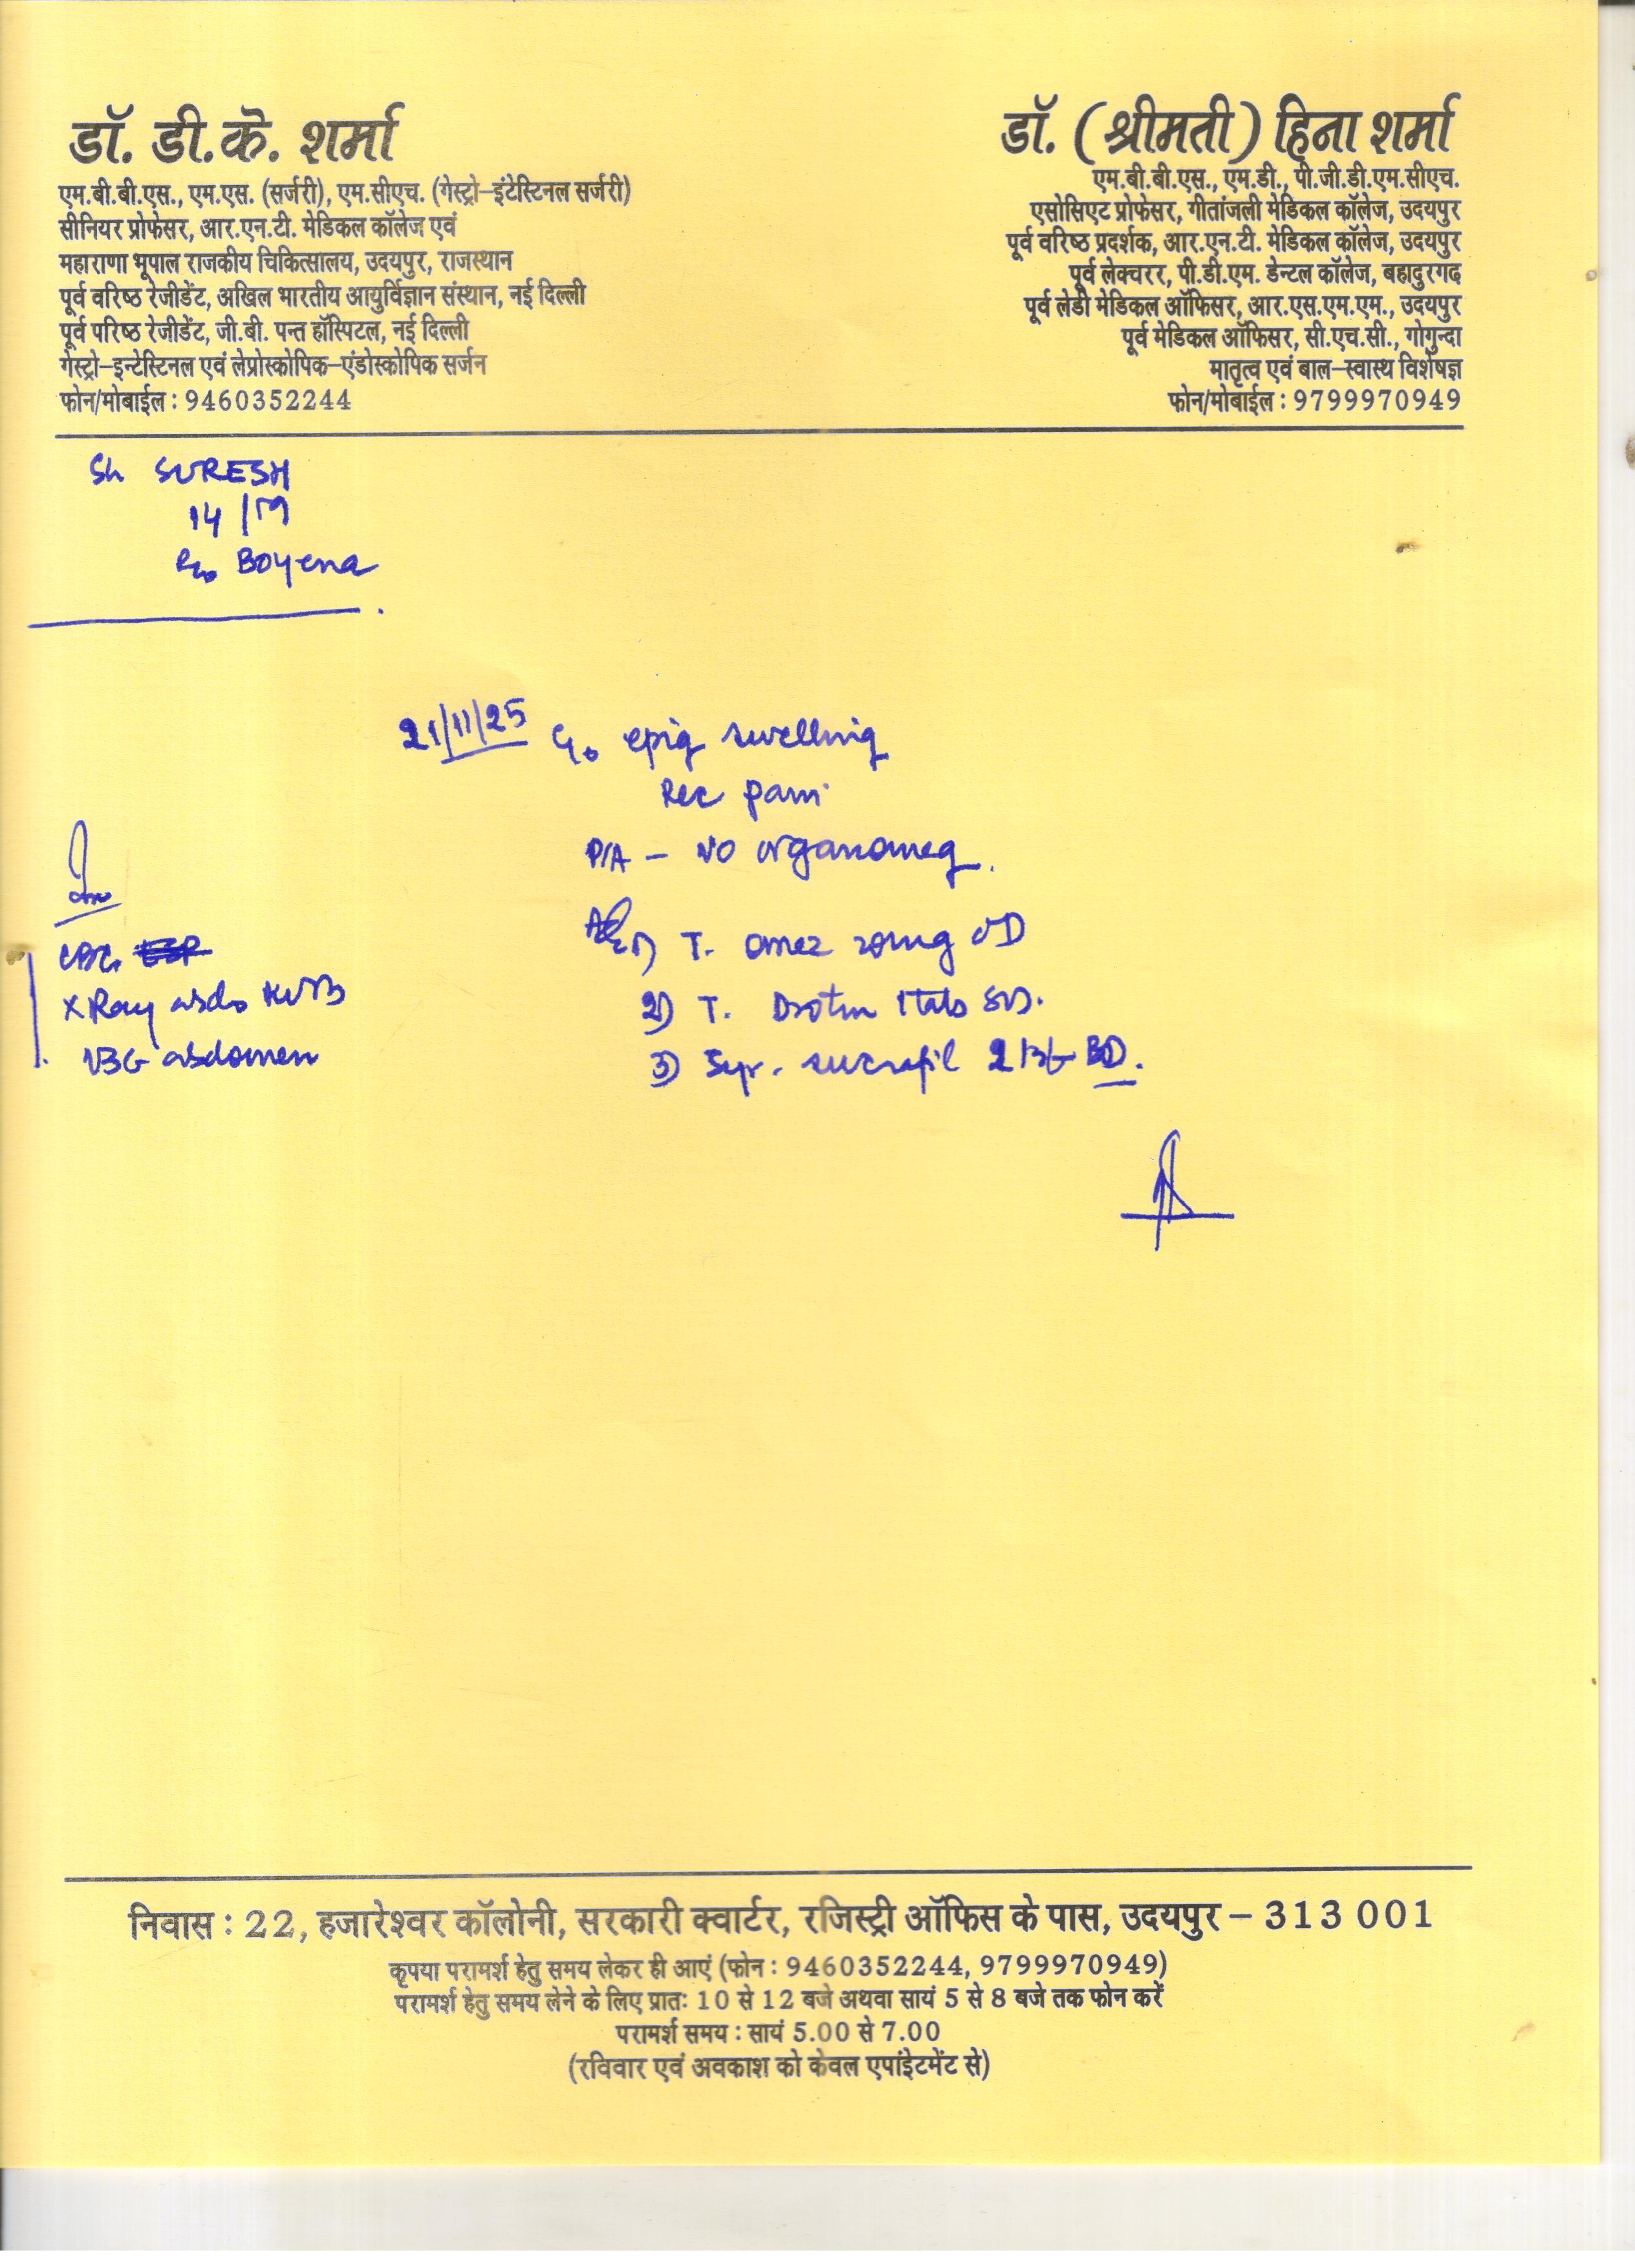 डॉ. डी.के. शर्मा
एम.बी.बी.एस., एम.एस. (सर्जरी), एम.सीएच. (गेस्ट्रो-इंटेस्टिनल सर्जरी)
सीनियर प्रोफेसर, आर.एन.टी. मेडिकल कॉलेज एवं
महाराणा भूपाल राजकीय चिकित्सालय, उदयपुर, राजस्थान
पूर्व वरिष्ठ रेजीडेंट, अखिल भारतीय आयुर्विज्ञान संस्थान, नई दिल्ली
पूर्व परिष्ठ रेजीडेंट, जी.बी. पन्त हॉस्पिटल, नई दिल्ली
गेस्ट्रो-इन्टेस्टिनल एवं लेप्रोस्कोपिक-एंडोस्कोपिक सर्जन
फोन/मोबाईल : 9460352244
डॉ. (श्रीमती) हिना शर्मा
एम.बी.बी.एस., एम.डी., पी.जी.डी.एम.सीएच.
एसोसिएट प्रोफेसर, गीतांजली मेडिकल कॉलेज, उदयपुर
पूर्व वरिष्ठ प्रदर्शक, आर.एन.टी. मेडिकल कॉलेज, उदयपुर
पूर्व लेक्चरर, पी.डी.एम. डेन्टल कॉलेज, बहादुरगढ
पूर्व लेडी मेडिकल ऑफिसर, आर.एस.एम.एम., उदयपुर
पूर्व मेडिकल ऑफिसर, सी.एच.सी., गोगुन्दा
मातृत्व एवं बाल-स्वास्थ विशेषज्ञ
फोन/मोबाईल : 9799970949
Sh SURESH
14/M
R/o
21/11/25 C/o epig swelling
Rec pain
P/A - NO organomeg.
Adv 1) T. omez 20mg OD
2) T. Drotin 1 tab
3) Syr. sucrafil 2 BD.
Inv
CBC
X Ray abdo KUB
USG abdomen
निवास : 22, हजारेश्वर कॉलोनी, सरकारी क्वार्टर, रजिस्ट्री ऑफिस के पास, उदयपुर - 313 001
कृपया परामर्श हेतु समय लेकर ही आएं (फोन : 9460352244, 9799970949)
परामर्श हेतु समय लेने के लिए प्रातः 10 से 12 बजे अथवा सायं 5 से 8 बजे तक फोन करें
परामर्श समय : सायं 5.00 से 7.00
(रविवार एवं अवकाश को केवल एपांइेटमेंट से)